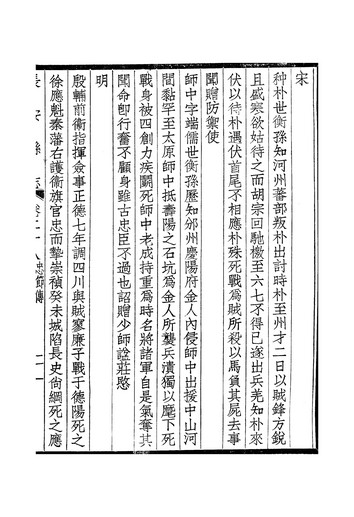 宋
种朴世衡孫知河州蕃部叛朴出討時朴至州才二日以賊鋒方銳
且盛寒欲姑待之而胡宗回馳檄至六七不得已遂出兵羌知朴來
伏以待朴遇伏首尾不相應朴殊死戰爲賊所殺以馬負其屍去事
聞贈防禦使
師中字端孺世衡孫歷知邠州慶陽府金人內侵師中出援中山河
間黏罕至太原師中抵壽陽之石坑爲金人所襲兵潰獨以麾下死
戰身被四創力疾鬭死師中老成持重爲時名將諸軍自是氣奪其
聞命卽行奮不顧身雖古忠臣不過也詔贈少師諡莊愍
明
殷輔前衞指揮僉事正德七年調四川與賊廖麻子戰于德陽死之
徐應魁秦藩右護衞旗官忠而摯崇禎癸未城陷長史尙綱死之應
長安縣志 卷二十八 忠節傳